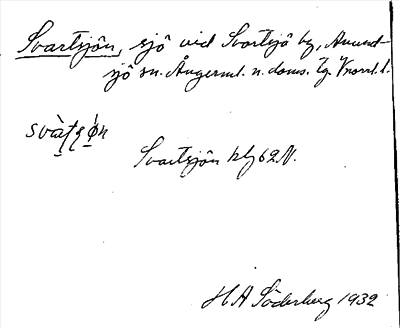 Svartsjön, sjö vid Svartsjö by, Anund-
sjö sn. Ångerml. n. doms. Tg. Vnorrl. l.
svàʈʂǿn
Svartsjön kbl 62 N.
H A Söderberg 1932